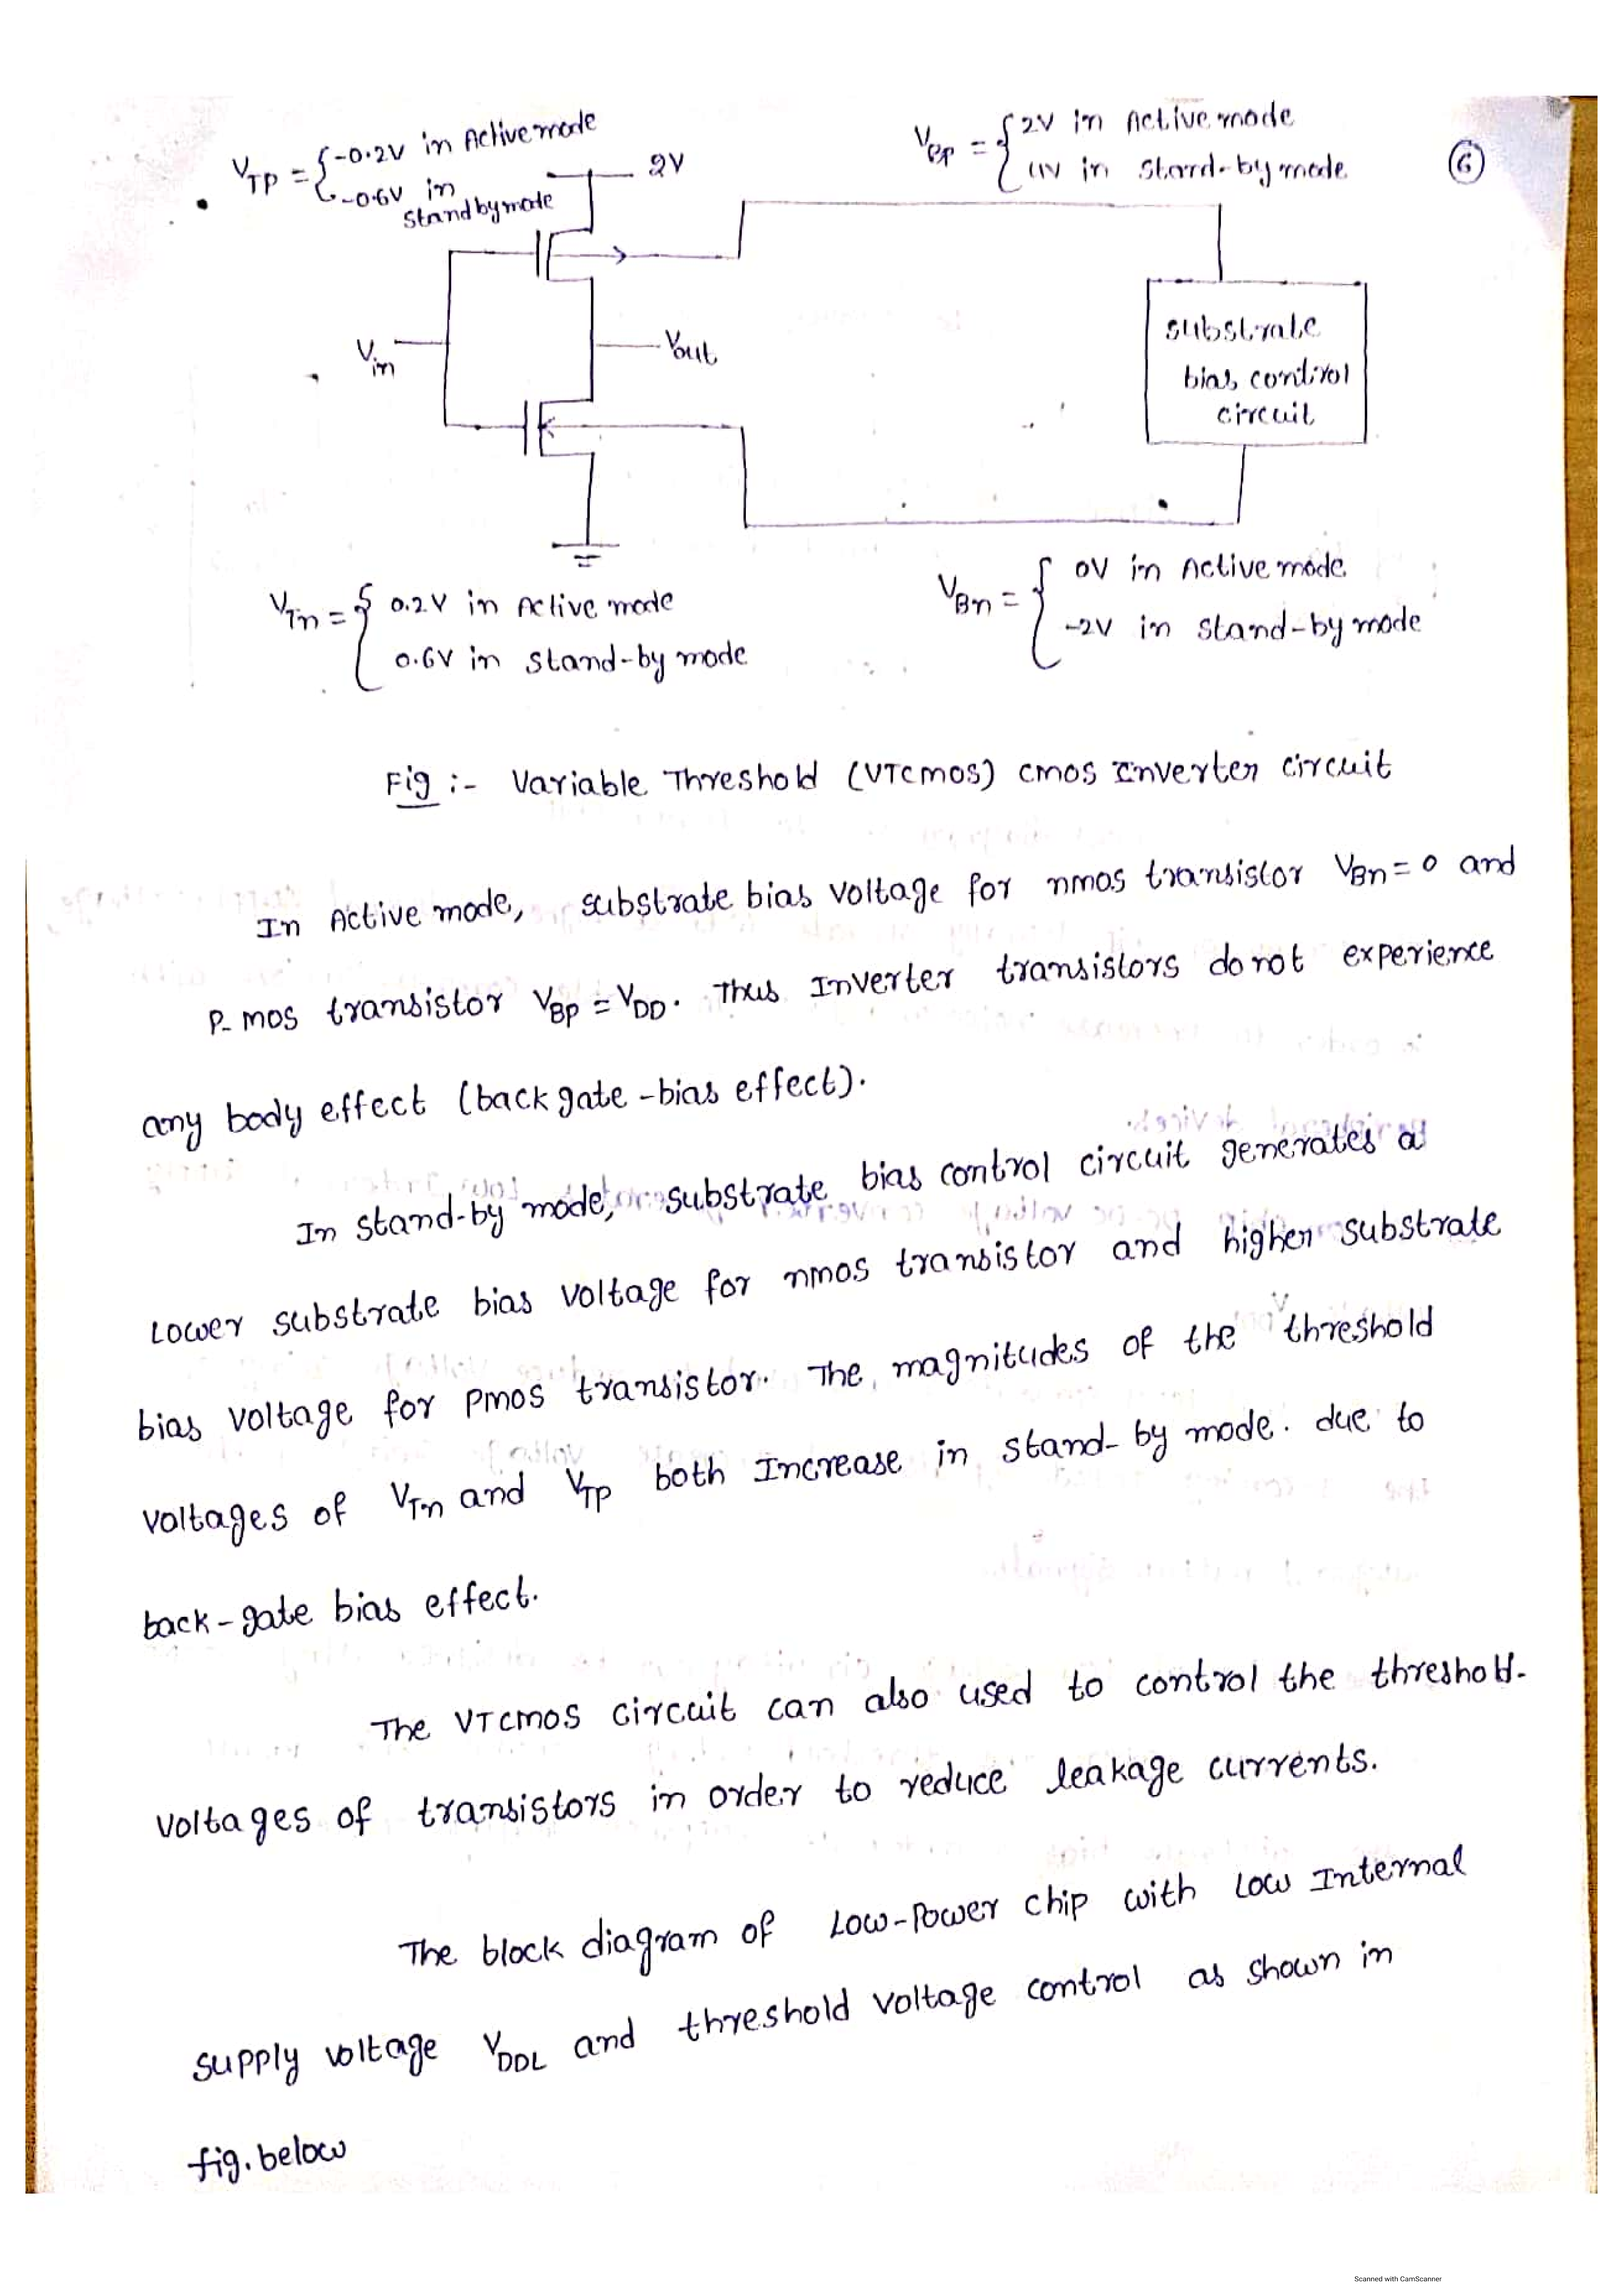 V_TP = { -0.2V in Active mode
-0.6V in
standby mode
2V
V_BP = { 2V in Active mode
4V in Stand-by mode
6
Vin
Vout
substrate
bias control
circuit
V_Tn = { 0.2V in Active mode
0.6V in stand-by mode
V_Bn = { 0V in Active mode
-2V in stand-by mode
Fig :- Variable Threshold (VTCMOS) CMOS Inverter circuit
In Active mode, substrate bias voltage for nmos transistor V_Bn = 0 and
P-mos transistor V_BP = V_DD. Thus Inverter transistors do not experience
any body effect (back gate-bias effect).
In stand-by mode, substrate bias control circuit generates a
Lower substrate bias voltage for nmos transistor and higher substrate
bias voltage for pmos transistor. The magnitudes of the threshold
voltages of V_Tn and V_TP both Increase in stand-by mode. due to
back-gate bias effect.
The VTCMOS circuit can also used to control the threshold-
voltages of transistors in order to reduce leakage currents.
The block diagram of Low-Power chip with Low Internal
supply voltage V_DDL and threshold voltage control as shown in
fig. below
Scanned with CamScanner